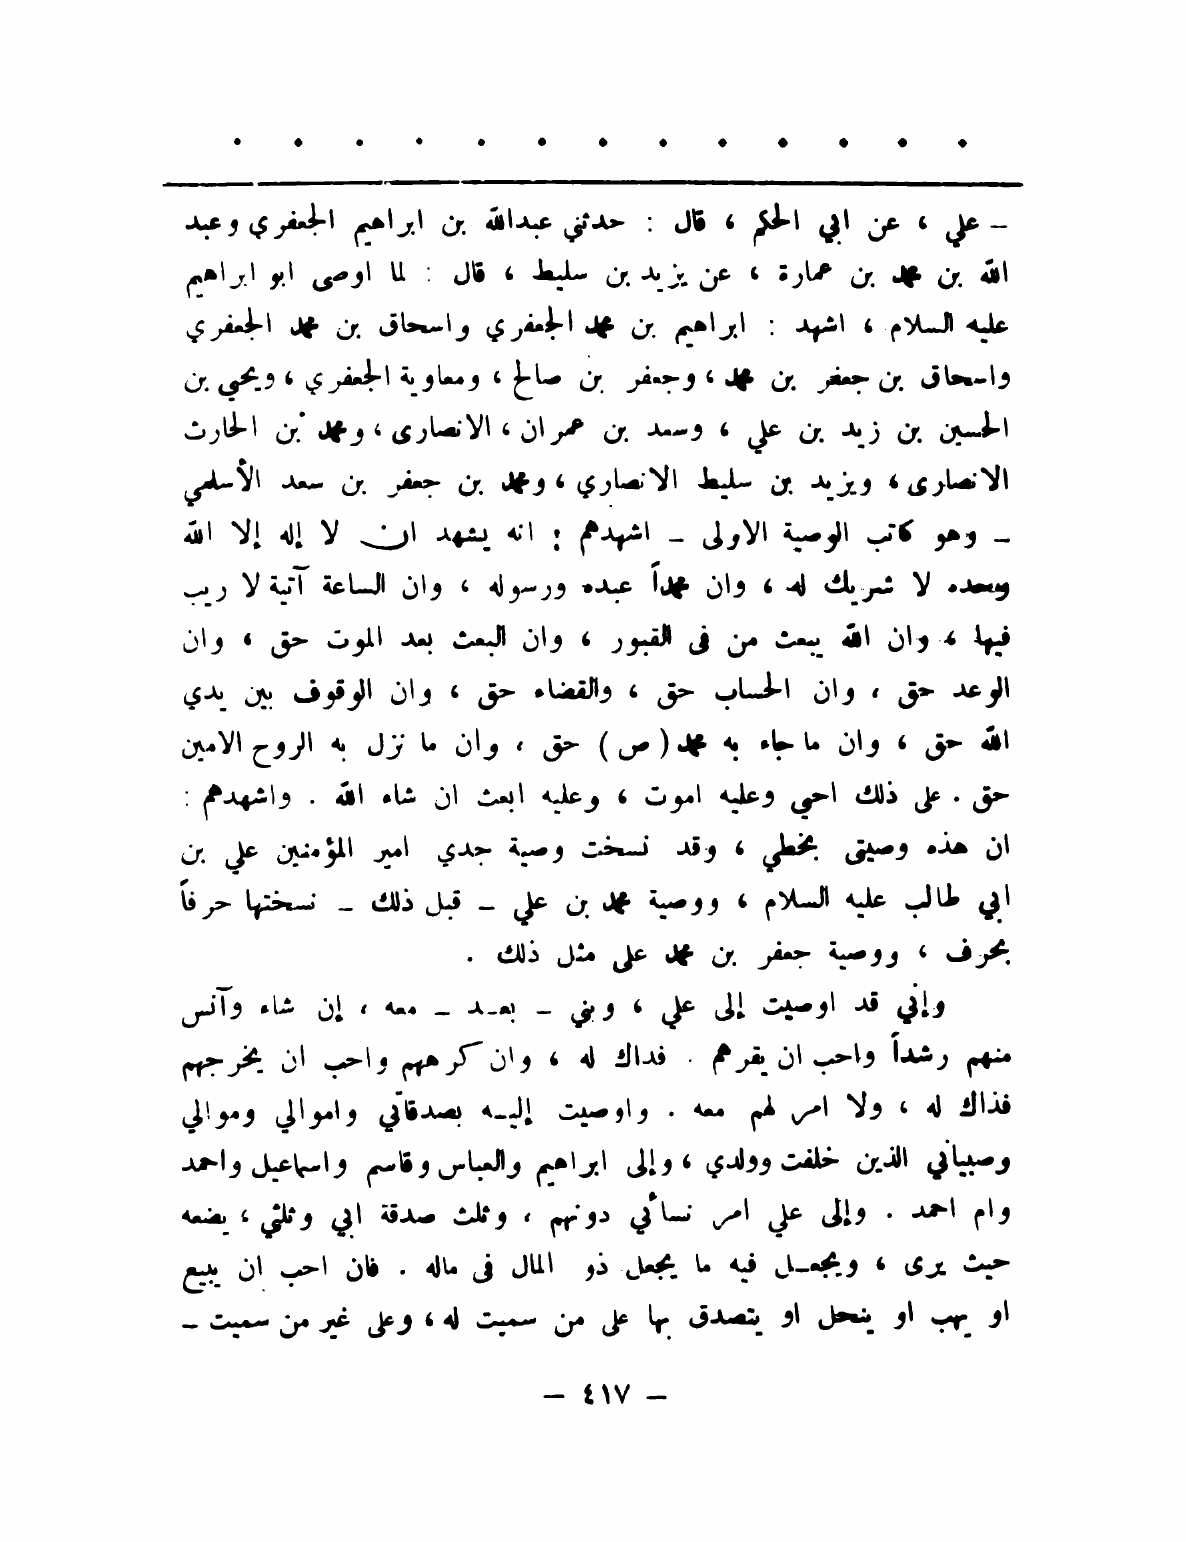 . . . . . . . . . . . . .
– علي ، عن ابي الحكم ، قال : حدثني عبدالله بن ابراهيم الجعفري وعبد
الله بن محمد بن عمارة ، عن يزيد بن سليط ، قال : لما اوصى ابو ابراهيم
عليه السلام ، اشهد : ابراهيم بن محمد الجعفري واسحاق بن محمد الجعفري
واسحاق بن جعفر بن محمد ، وجعفر بن صالح ، ومعاوية الجعفري ، ويحيى بن
الحسين بن زيد بن علي ، وسعد بن عمران ، الانصارى ، ومحمد بن الحارث
الانصارى ، ويزيد بن سليط الانصاري ، ومحمد بن جعفر بن سعد الأسلمي
– وهو كاتب الوصية الاولى – اشهدهم : انه يشهد ان لا إله إلا الله
وحده لا شريك له ، وان محمداً عبده ورسوله ، وان الساعة آتية لا ريب
فيها ، وان الله يبعث من فى القبور ، وان البعث بعد الموت حق ، وان
الوعد حق ، وان الحساب حق ، والقضاء حق ، وان الوقوف بين يدي
الله حق ، وان ما جاء به محمد ( ص ) حق ، وان ما نزل به الروح الامين
حق . على ذلك احيي وعليه اموت ، وعليه ابعث ان شاء الله . واشهدهم :
ان هذه وصيتى بخطي ، وقد نسخت وصية جدي امير المؤمنين علي بن
ابي طالب عليه السلام ، ووصية محمد بن علي – قبل ذلك – نسختها حرفاً
بحرف ، ووصية جعفر بن محمد على مثل ذلك .
وإني قد اوصيت إلى علي ، وبني – بعد – معه ، إن شاء وآنس
منهم رشداً واحب ان يقرهم . فداك له ، وان كرههم واحب ان يخرجهم
فذاك له ، ولا امر لهم معه . واوصيت إليه بصدقاتي واموالي وموالي
وصبياني الذين خلفت وولدي ، وإلى ابراهيم والعباس وقاسم واسماعيل واحمد
وام احمد . وإلى علي امر نسائي دونهم ، وثلث صدقة ابي وثلثي ، يضعه
حيث يرى ، ويجعل فيه ما يجعل ذو المال فى ماله . فان احب ان يبيع
او يهب او ينحل او يتصدق بها على من سميت له ، وعلى غير من سميت –
– ٤١٧ –